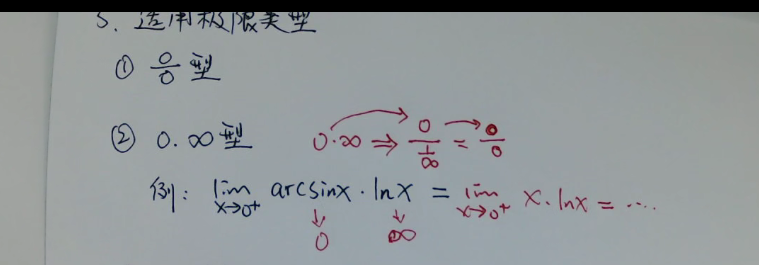 3、适用极限类型
① 0/0 型
② 0·∞型 0·∞ ⇒ 0/(1/∞) = 0/0
例: lim x→0⁺ arcsinx · lnx = lim x→0⁺ x·lnx = ···
↓ ↓
0 ∞